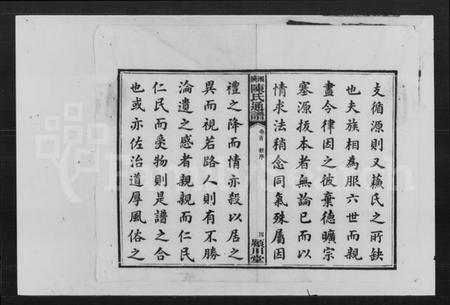 支循源則又蘓氏之所缺
也夫族相為服六世而親
盡今律因之彼棄德曠宗
塞源拔本者無論已而以
情求法稍念同氣殊屬因
陳氏通譜
卷首
四
潁川堂
禮之降而情亦殺以居之
異而視若路人則有不勝
淪遺之感者親親而仁民
仁民而愛物則是譜之合
也或亦佐治道厚風俗之